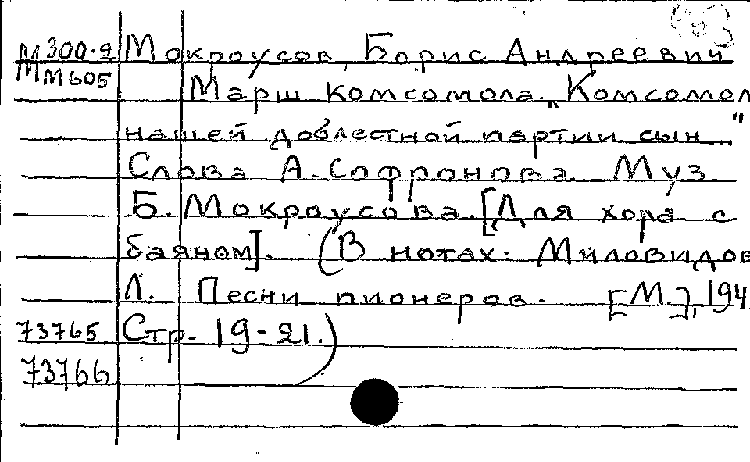 М300-2 Мокроусов, Борис Андреевич
ММ605 Марш комсомола. "Комсомол
нашей доблестной партии сын"
Слова А. Софронова. Муз.
Б. Мокроусова. [Для хора с
баяном]. (В нотах: Миловидов
Л. Песни пионеров. [М.], 194
73765 Стр. 19-21.)
73766